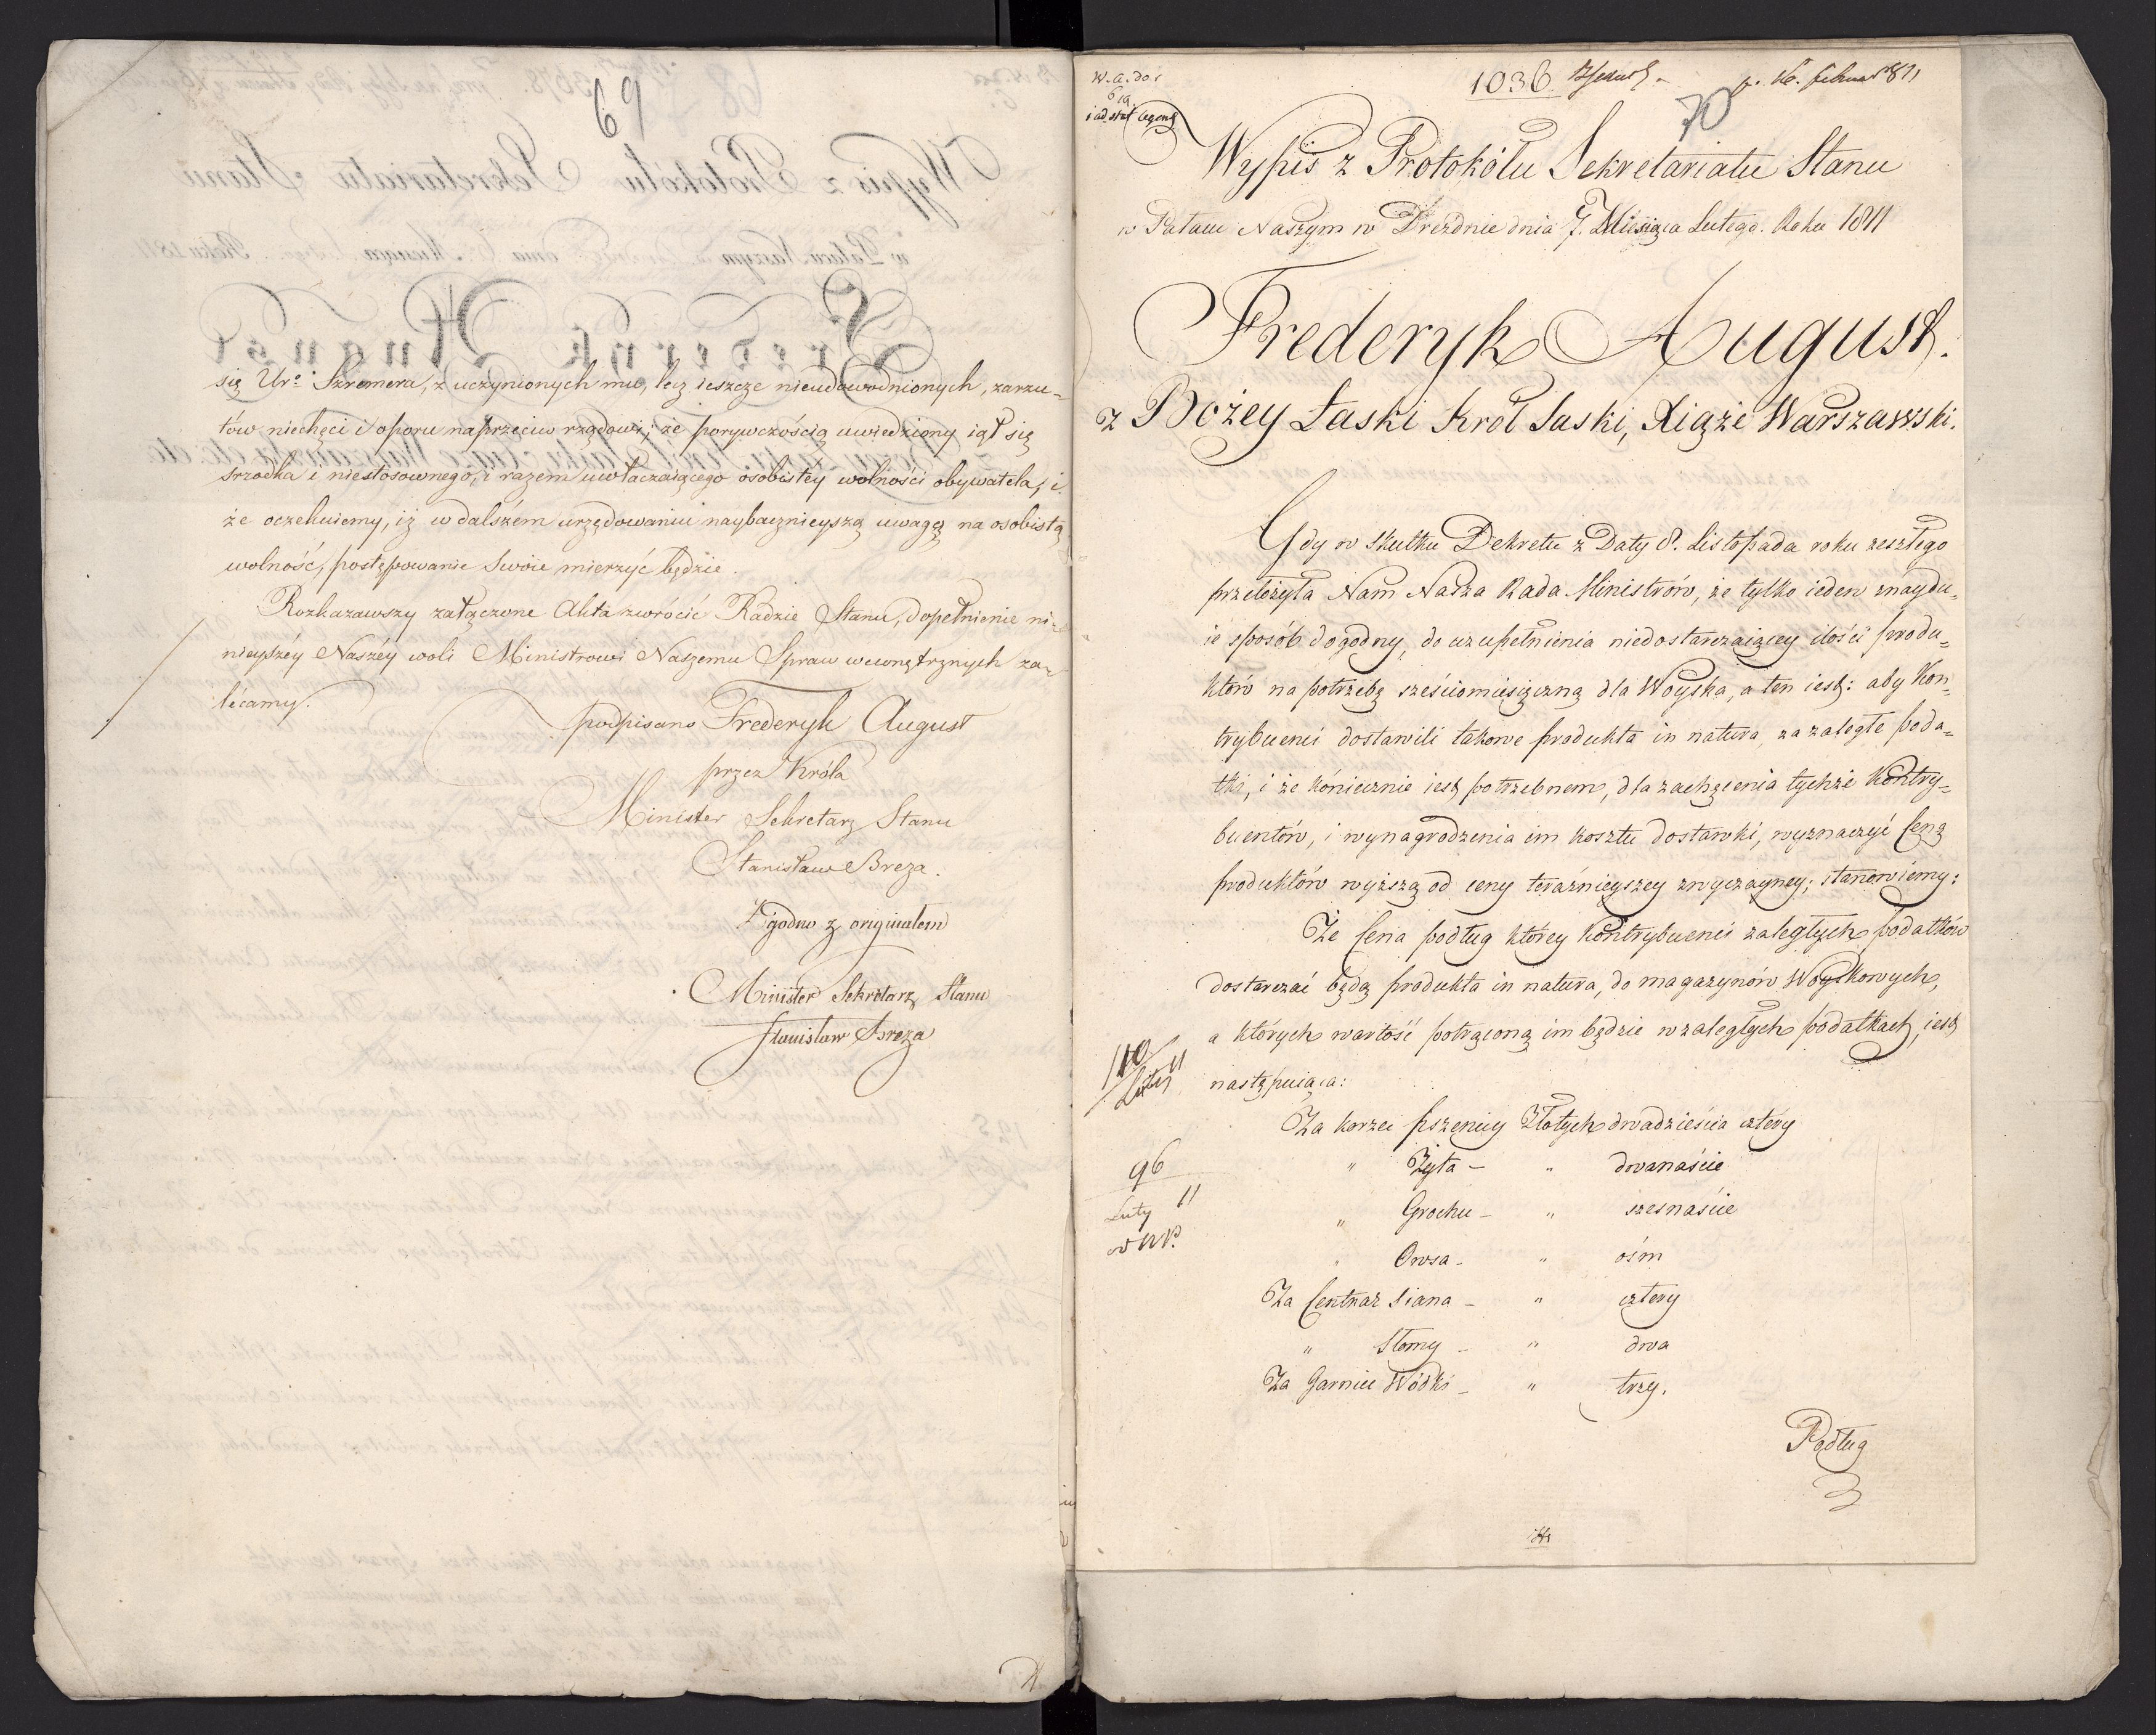 69
się Ur: Szremera, z uczynionych mu, lecz ieszcze nieudowodnionych, zarzu-
tów niechęci i oporu naprzeciw rządowi; że porywczością uwiedziony iął się
srzodka i niestosownego, i razem uwłaczaiącego osobistéy wolności obywatela, i
że oczekuiemy, iż w dalszém urzędowaniu naybacznieyszą uwagę na osobistą
wolność, postępowanie swoie mierzyć będzie.
Rozkazawszy załączone Akta zwrócić Radzie Stanu, dopełnienie ni-
nieyszéy Naszéy woli Ministrowi Naszemu Spraw wewnętrznych za-
lécamy.
podpisano Frederyk August
przez Króla
Minister Sekretarz Stanu
Stanisław Breza.
Zgodno z originałem
Minister Sekretarz Stanu
Stanisław Breza
W. a. do
1036
70
Wypis z Protokółu Sekretariatu Stanu
w Pałacu Naszym w Dreźdnie dnia 7. Miesiąca Lutego. Roku 1811
Frederyk August.
z Bożey Łaski Król Saski, Xiąże Warszawski.
Gdy w skutku Dekretu z Daty 8. Listopada roku zeszłego
przełożyła Nam Nasza Rada Ministrów, że tylko ieden znaydu-
ie sposób dogodny, do uzupełnienia niedostarczaiącey ilości produ-
któw na potrzebę sześciomiesięczną dla Woyska, a ten iest: aby Kon-
trybuenci dostawili takowe produkta in natura, za zaległe poda-
tki, i że koniecznie iest potrzebnem, dla zachęcenia tychże Kontry-
buentów, i wynagrodzenia im kosztu dostawki, wyznaczyć Cenę
produktów wyższą od ceny teraźnieyszey zwyczayney; stanowiemy:
Że Cena podług którey Kontrybuenci zaległych podatków
dostarczać będą produkta in natura, do magazynów Woyskowych,
a których wartość potrąconą im będzie w zaległych podatkach, iest
następuiąca:
Za korzec pszenicy Złotych dwadzieścia cztery
" Żyta - " dwanaście
" Grochu - " szesnaście
" Owsa - " ośm
Za Centnar Siana - " cztery
" Słomy - " dwa
Za Garniec Wódki - " trzy.
110
Luty 11
96
Luty 11
Podług